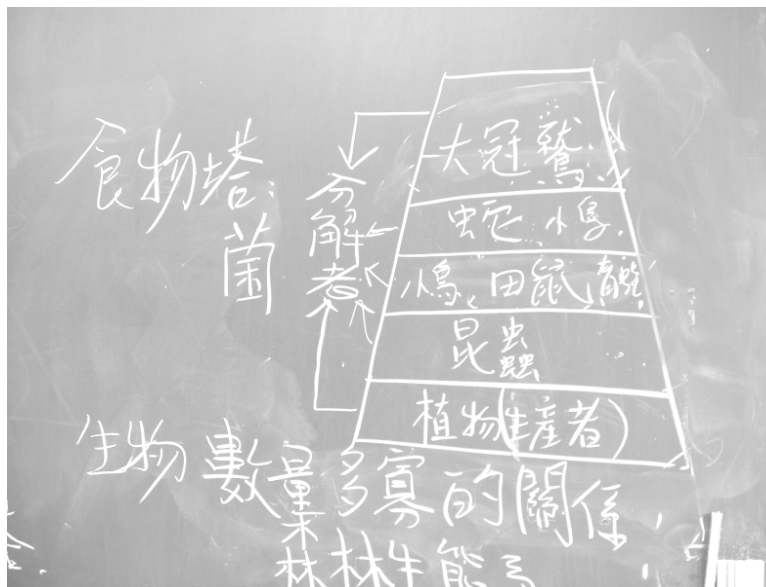 食物塔:
菌
分解者
大冠鷲
蛇、小鳥
小鳥、田鼠、青蛙
昆蟲
植物(生產者)
生物數量多寡的關係